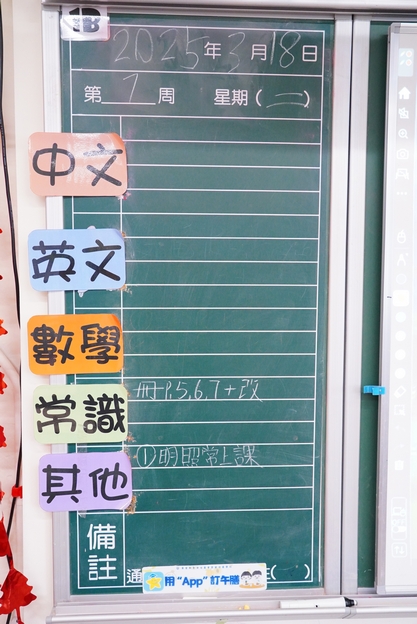 1B
2025年3月18日
第7周 星期(二)
中文
英文
數學
冊P.5,6,7+改
常識
(1)明照常上課
其他
備註
通
用“App”訂午膳
( )